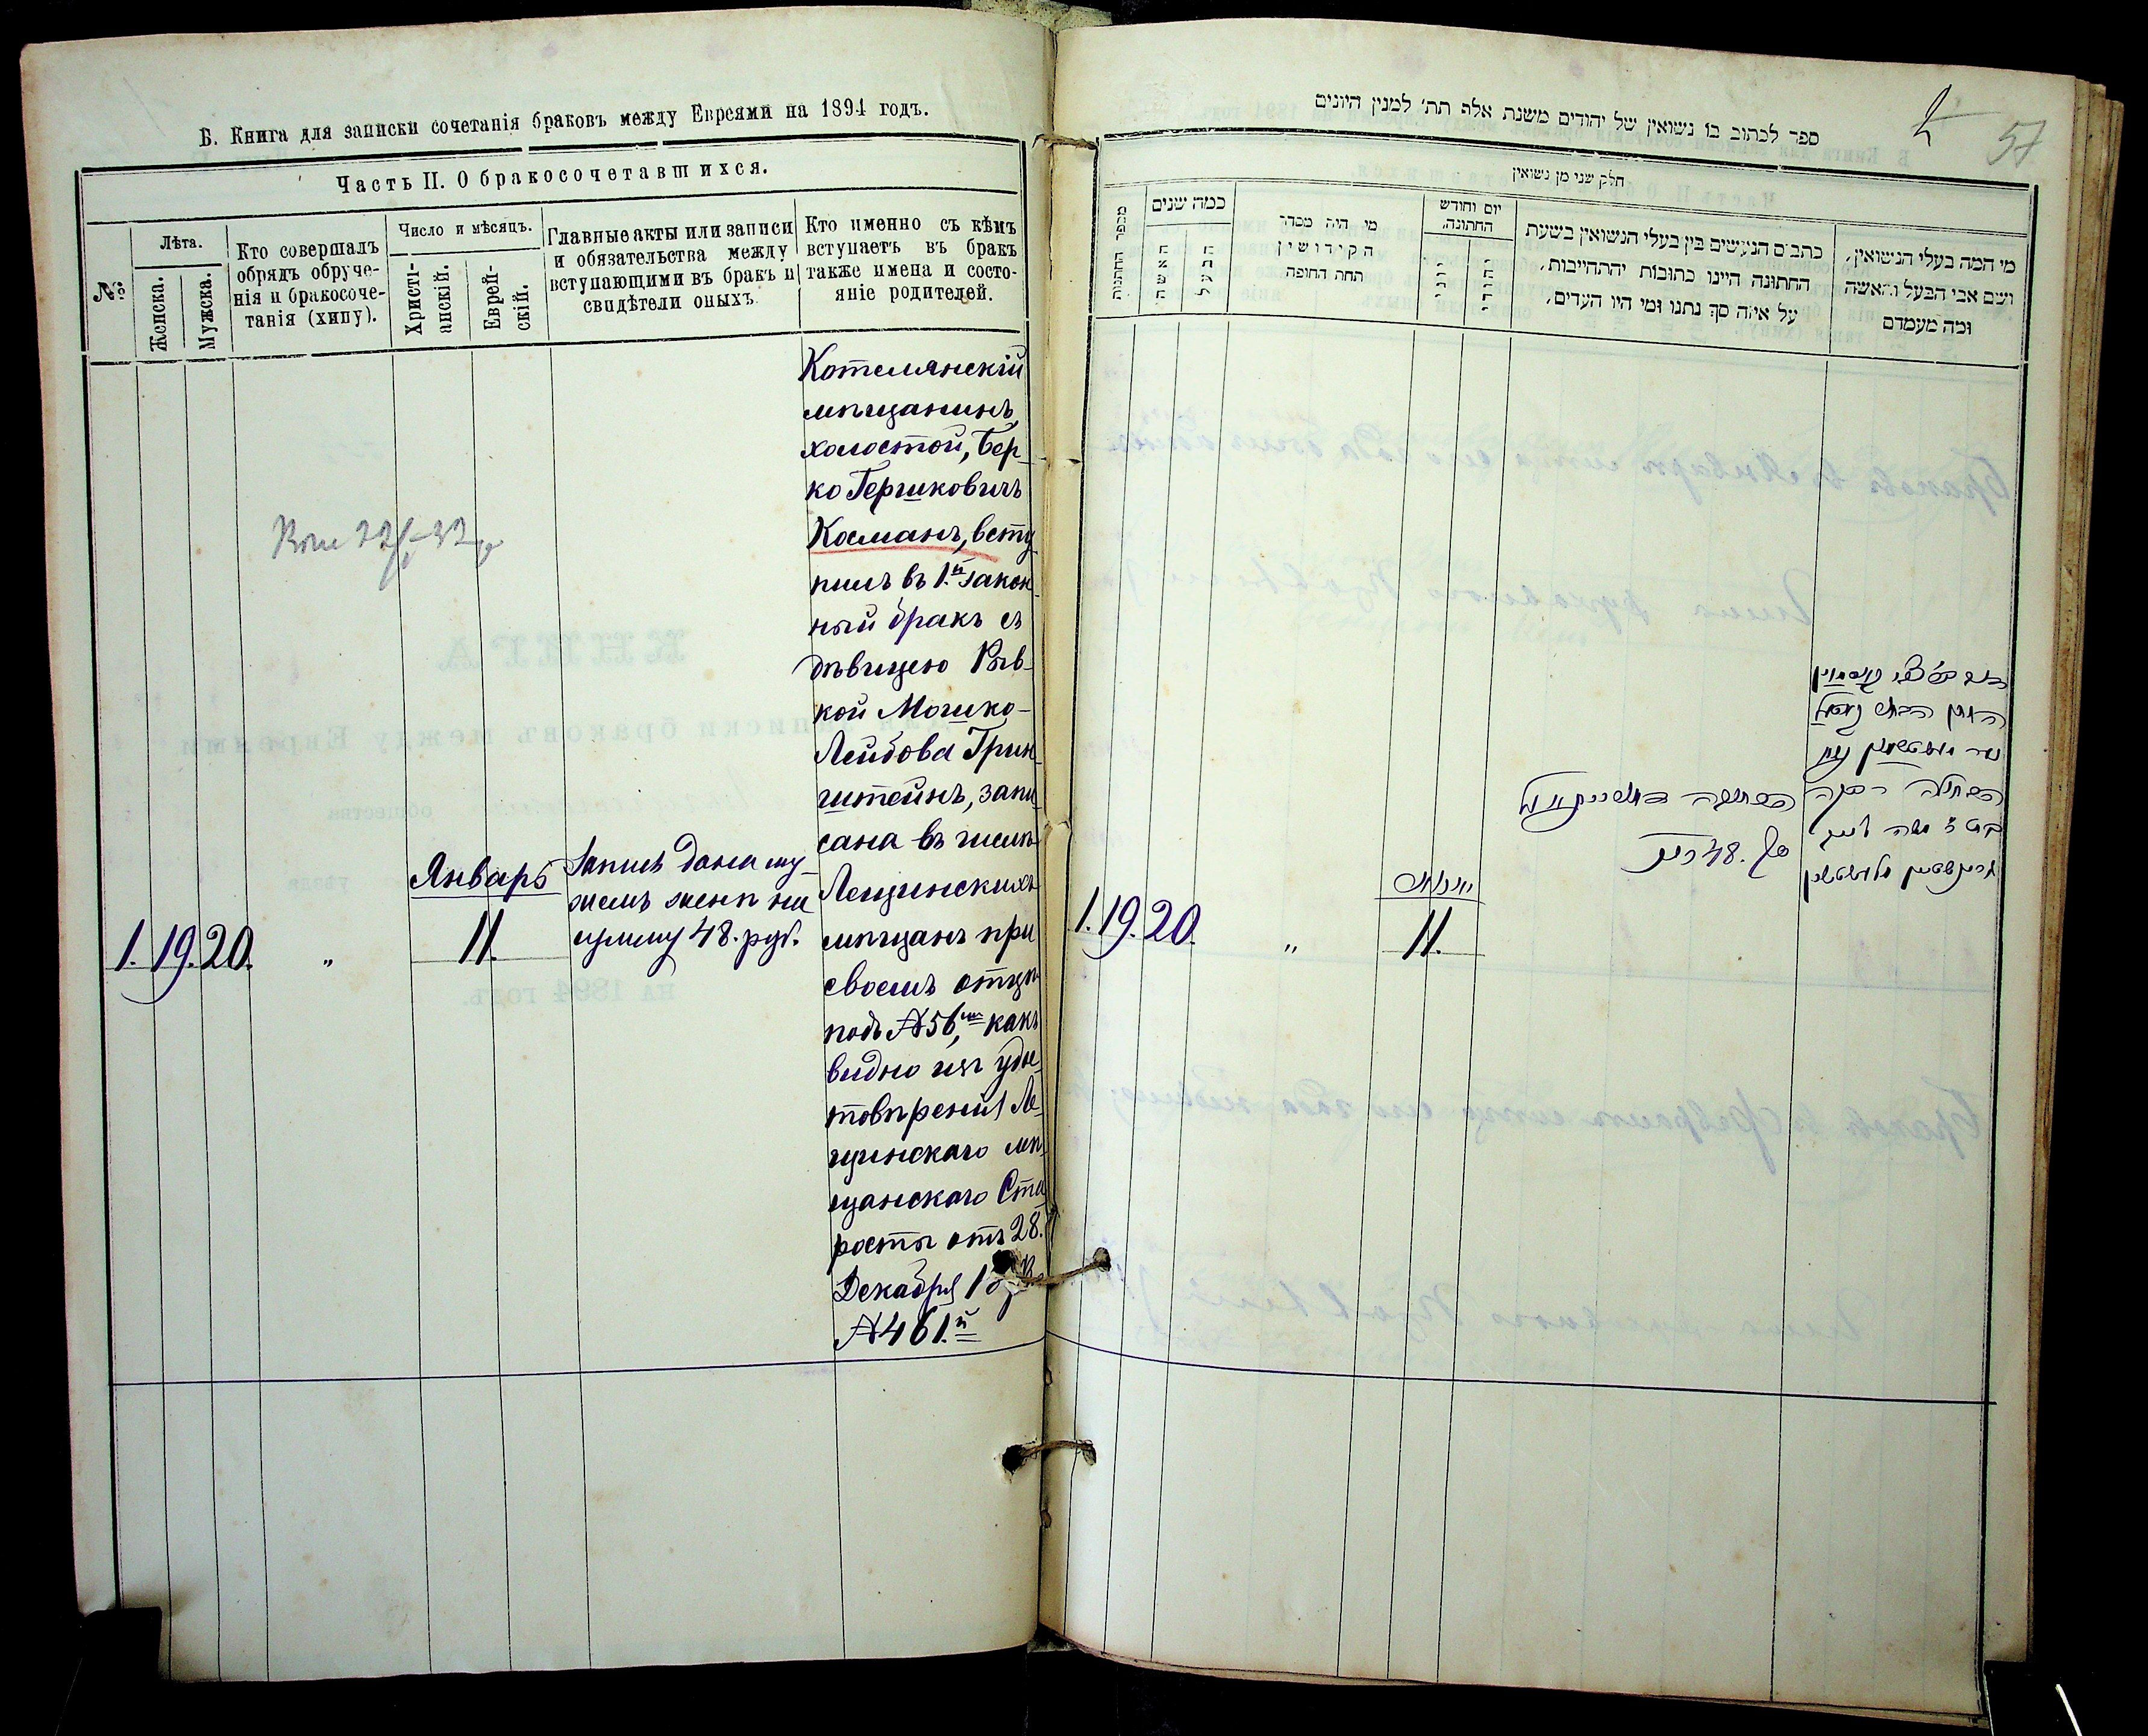 Б. Книга для записки сочетанія браковъ между Евреями на 1894 годъ.
Часть II. О бракосочетавшихся.
№
Лѣта.
Женска.
Мужска.
Кто совершалъ
обрядъ обруче-
нія и бракосоче-
танія (хипу).
Число и мѣсяцъ.
Христі-
анскій.
Еврей-
скій.
Главные акты или записи
и обязательства между
вступающими въ бракъ и
свидѣтели оныхъ.
Кто именно съ кѣмъ
вступаетъ въ бракъ
также имена и состо-
яніе родителей.
1. 19. 20. „
Январь
11.
Запись дана му-
жемъ женѣ на
сумму 48. руб.
Котелянскій
мѣщанинъ,
холостой, Бер-
ко Гершковичъ
Косманъ, всту
пилъ въ 1.й закон-
ный бракъ съ
дѣвицею Рыв-
кой Мошко-
Лейбова Грин-
штейнъ, запи-
сана въ числѣ
Лещинскихъ
мѣщанъ при
своемъ отцѣ
подъ №56, какъ
видно изъ удос-
товѣренія Ле-
щинскаго мѣ-
щанскаго Ста
росты отъ 28.
Декабря
№461.й
ספר לכתוב בו נשואין של יהודים משנת אלף תת׳ למנין היונים
2
57
חלק שני מן נשואין
מספר החתונות
כמה שנים
האשה
הבעל
מי היה מסדר
הקידושין
תחת החופה
יום וחודש
החתונה.
כתבים הנעשים בין בעלי הנשואין בשעת
החתונה היינו כתובות יהתחייבות,
על איזה סך נתנו ומי היו העדים,
מי המה בעלי הנשואין,
ושם אבי הבעל והאשה
ומה מעמדם
1. 19. 20. „
יאנואר
11.
סך 48.
הבתולה רבקה
משה ליב
גרינשטיין